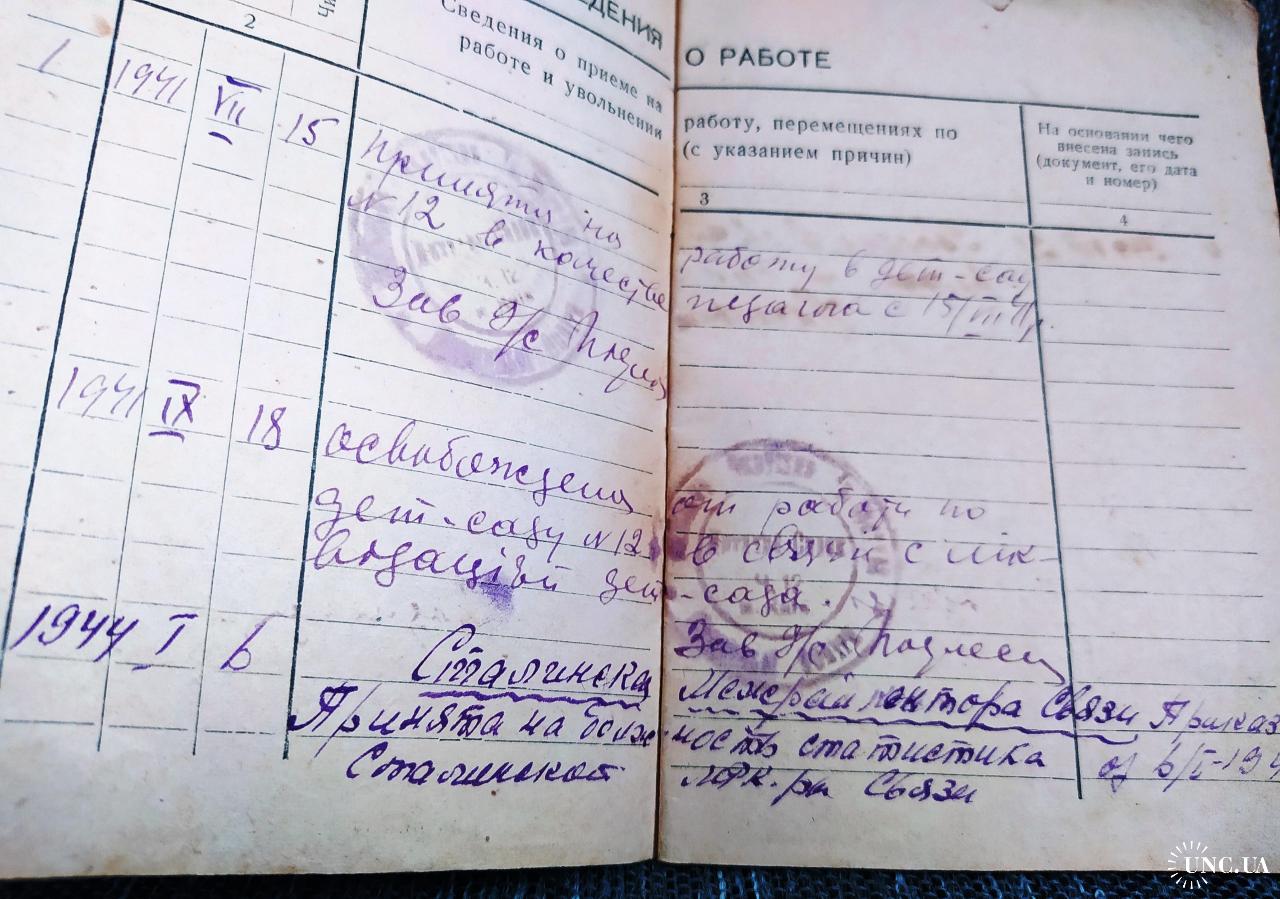 СВЕДЕНИЯ О РАБОТЕ
2
Сведения о приеме на работу, перемещениях по
работе и увольнении (с указанием причин)
На основании чего
внесена запись
(документ, его дата
и номер)
3
4
1 1941 VII 15 Принята на работу в дет-сад
№ 12 в качестве педагога с 15/VII 41г.
Зав д/с
1941 IX 18 освобождена от работи по
дет-саду №12 в связи с лік-
видацієй дет-сада.
Зав д/с
1944 I 6 Сталинская Межрай контора Связи Приказ
Принята на долж-ность статистика от 6/I-194
Сталинской МРК-ры Связи
UNC.UA